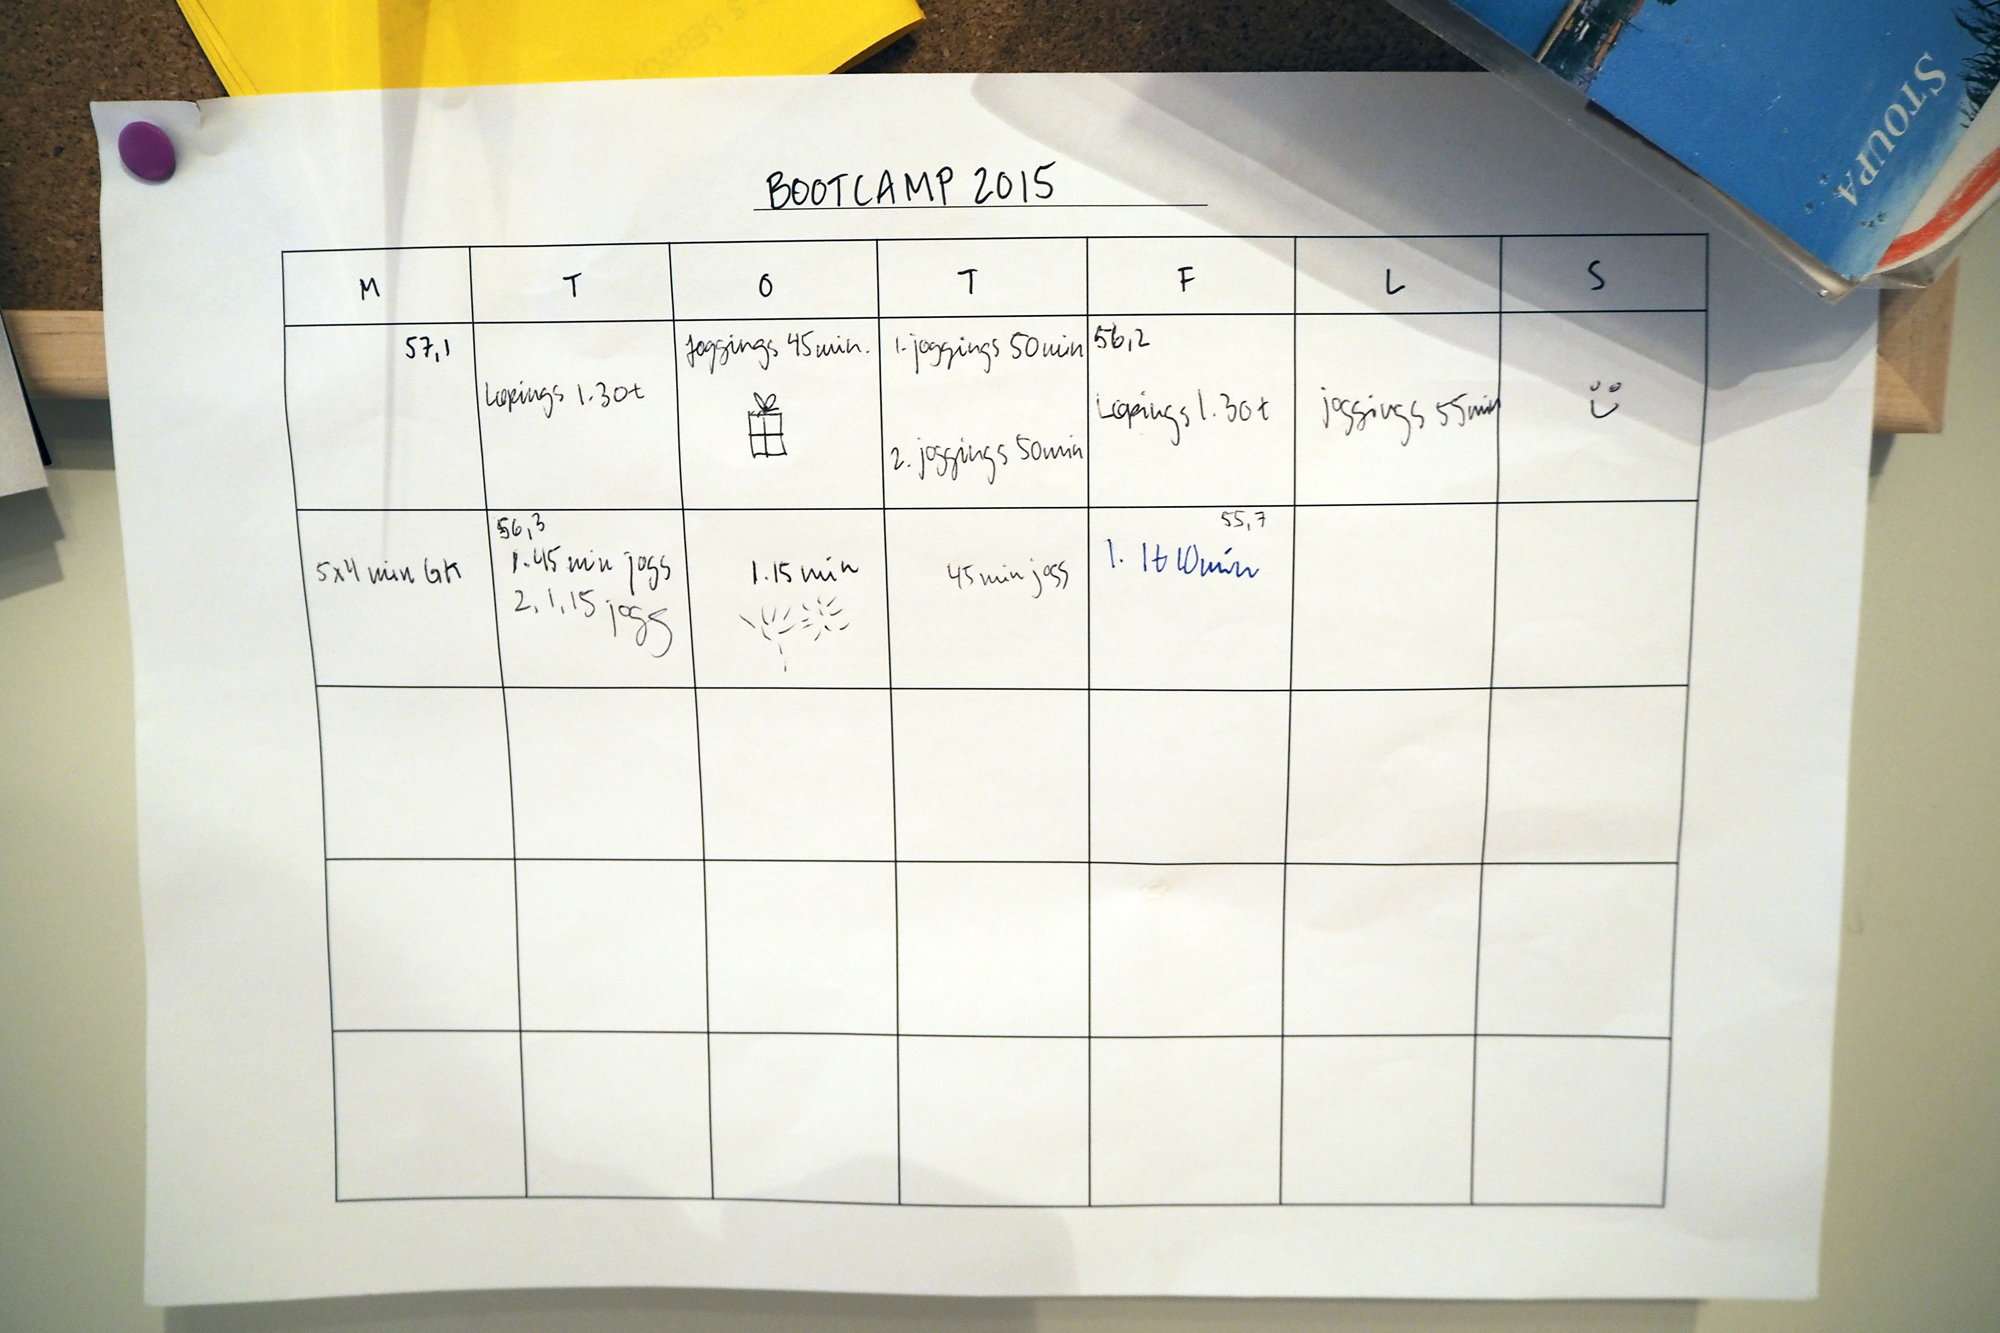 STOUPA
BOOTCAMP 2015
M T O T F L S
57,1
Löpings 1.30t
Joggings 45min.
1. joggings 50min
2. joggings 50min
56,2
Löpings 1.30t
joggings 55min
5x4 min GK
56,3
1. 45 min jogg
2. 1,15 jogg
1.15 min
45 min jogg
55,7
1. 1t 10min